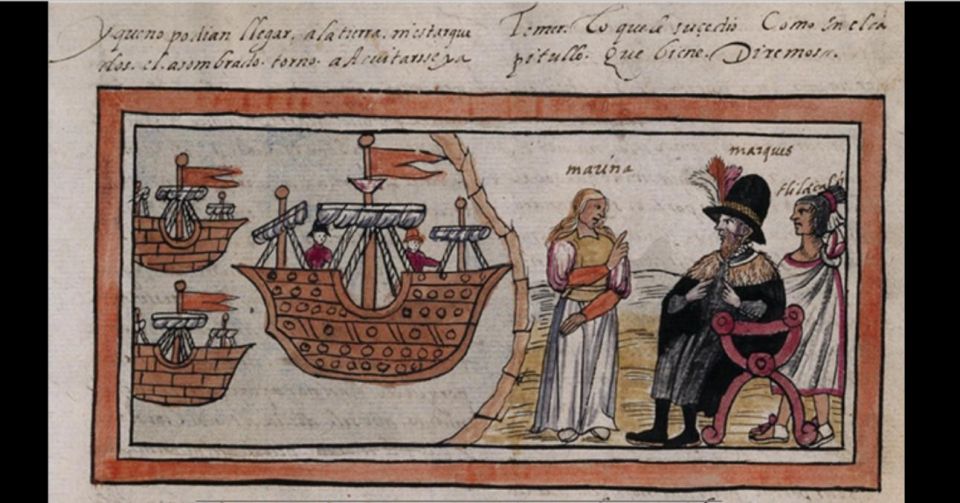 y que no podian llegar. a la tierra. ni estar que
dos. el asombrado. torno. a Recitar se ya
Temer. Lo que le sucedio Como En el ca
pitullo. Que biene. Diremos.
marina
marques